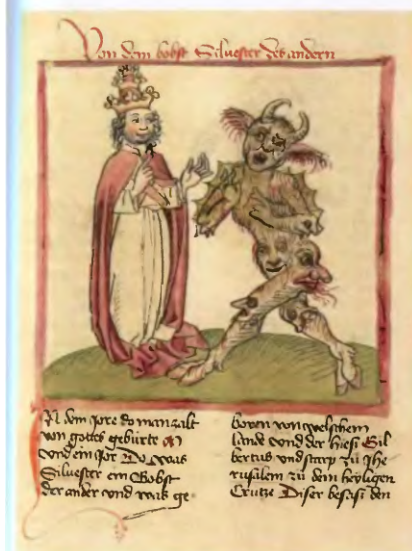 Von dem bobst Siluester des andern
In dem jore do man zalt
von gottes gebürte M
vnd ein jor Do was
Siluester ein Bobst
der ander vnd was ge-
boren von welschem
lande vnd der hiesz Gil
bertus vnd starp zu Jhe
rusalem zu dem heyligen
Crutze Diser besasz den